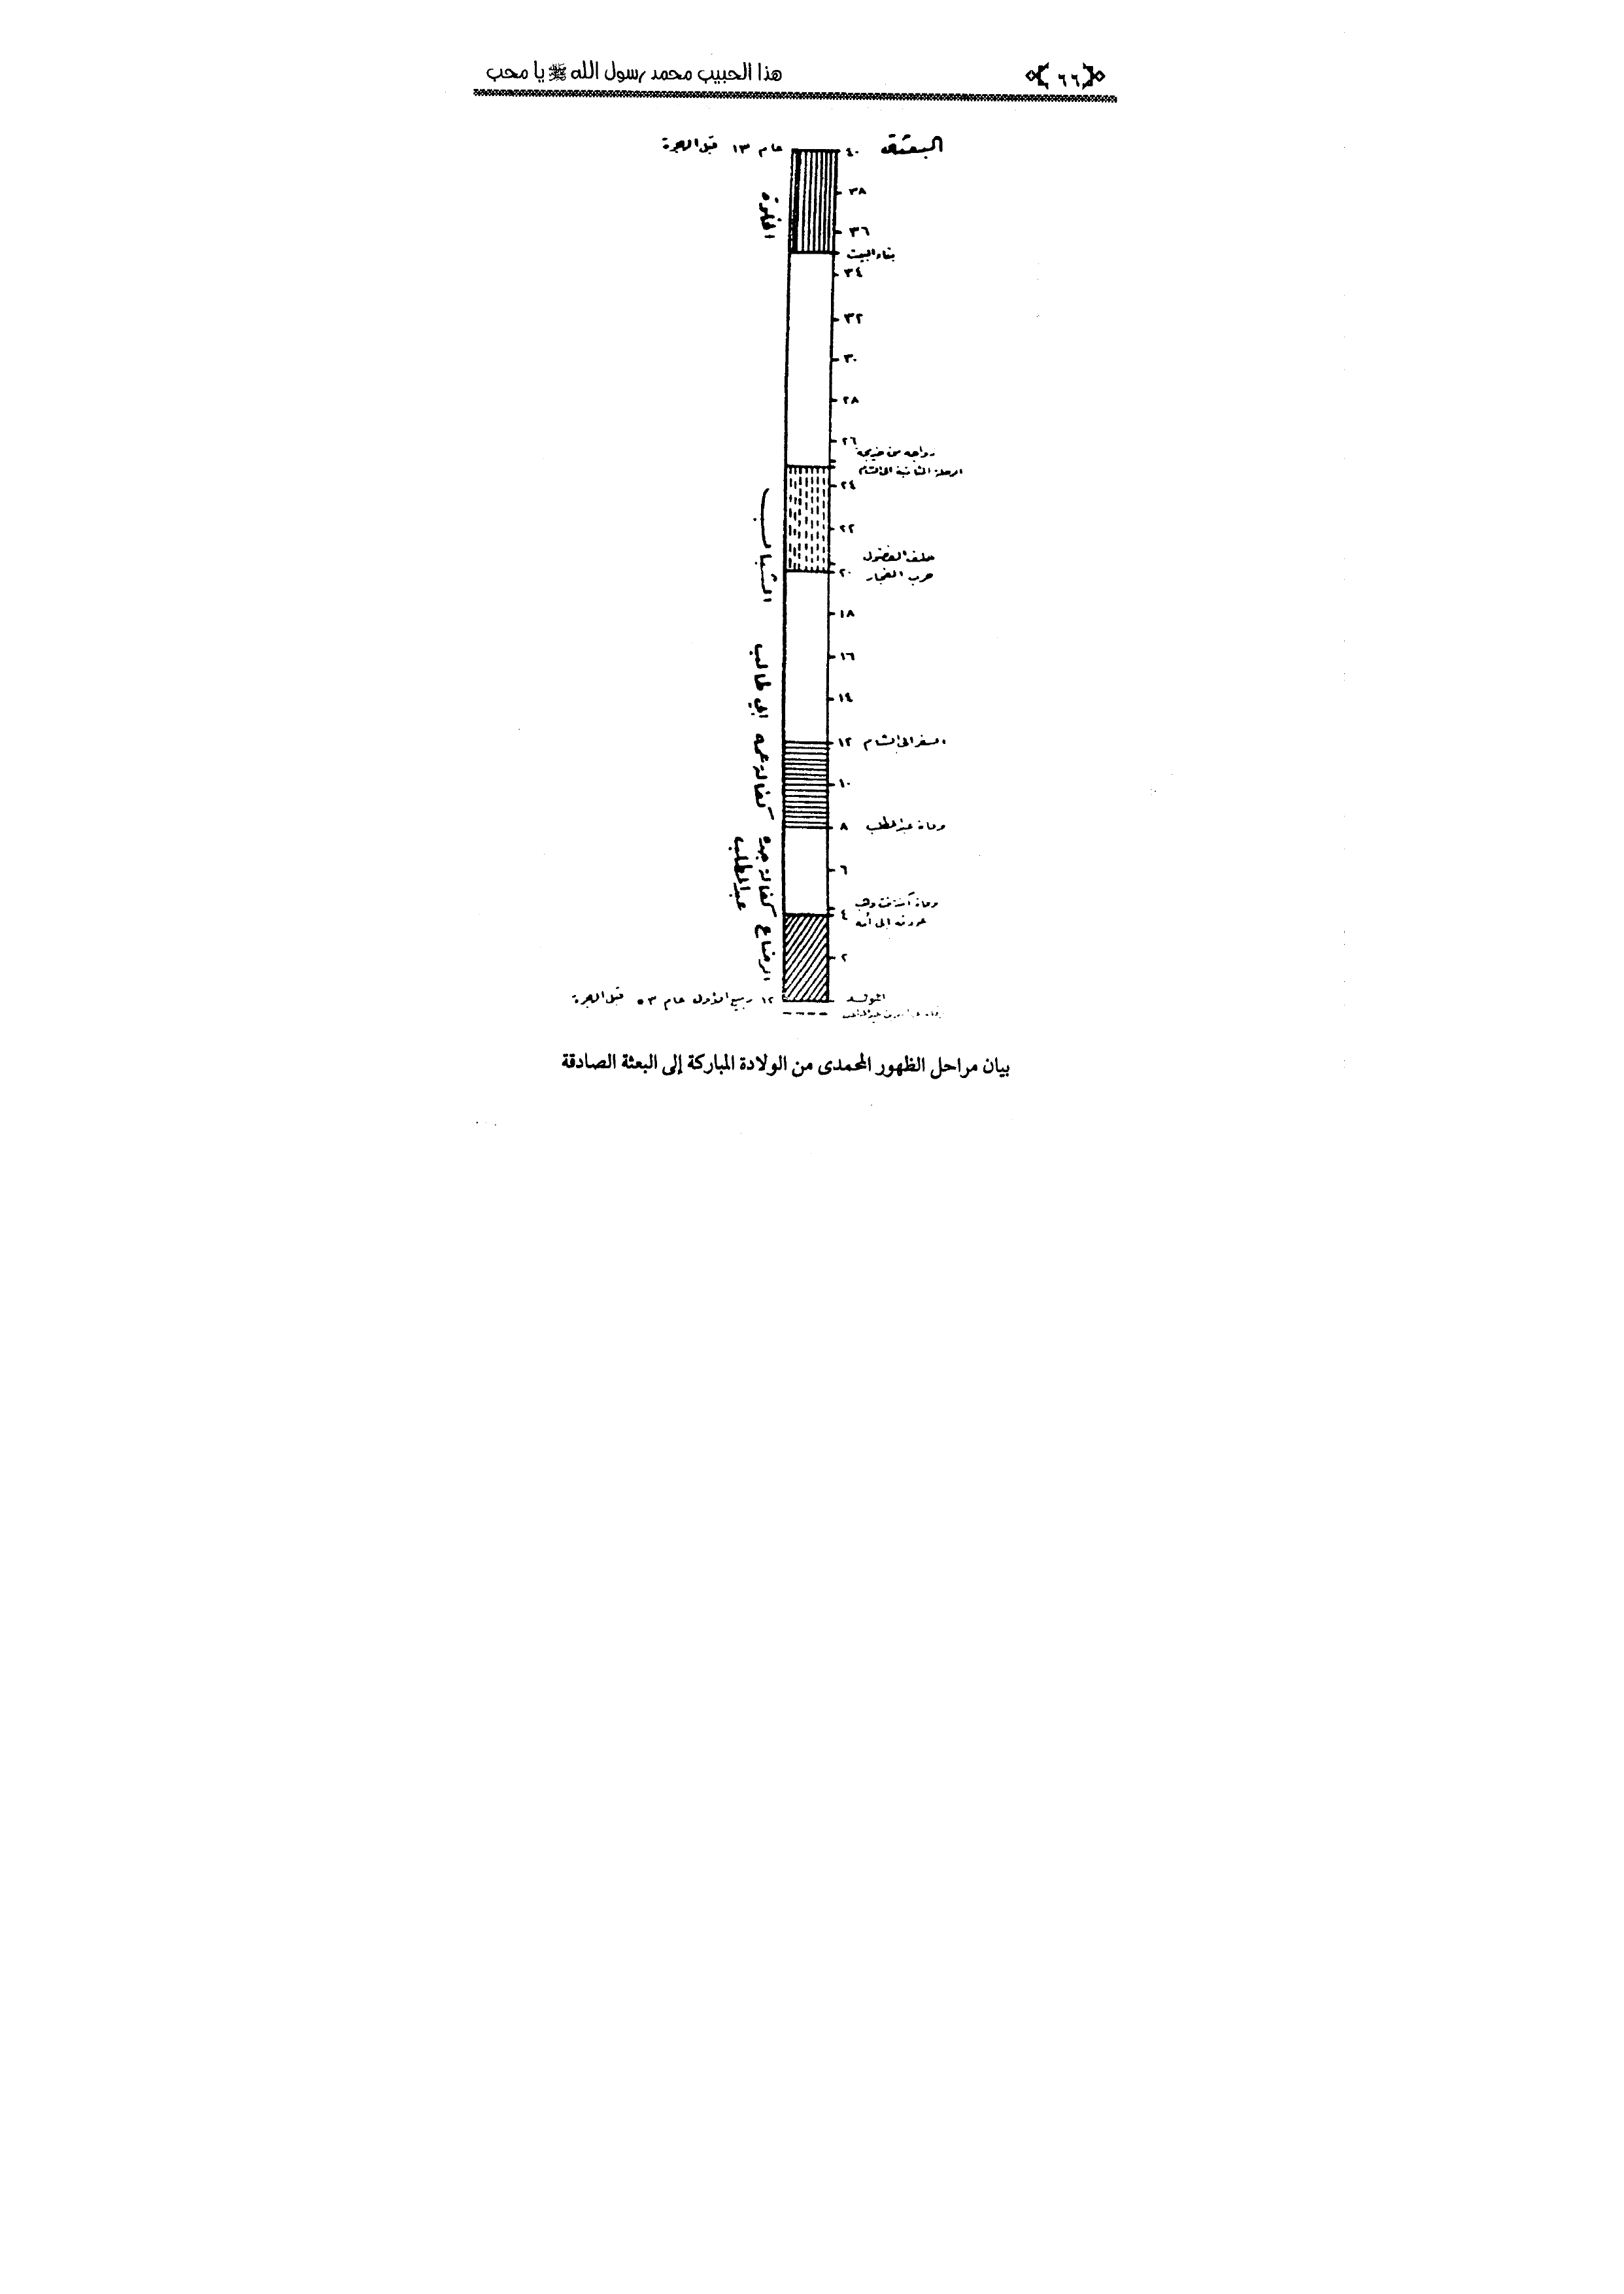 ﴿٦٦﴾ هذا الحبيب محمد رسول الله ﷺ يا محب
البعثة ٤٠ عام ١٣ قبل الهجرة
٣٨
الخلوة
٣٦
بناء البيت
٣٤
٣٢
٣٠
٢٨
٢٦
زواجه من خديجة
الرحلة الثانية الى الشام
٢٤
٢٢
الشباب
حلف الفضول
٢٠ حرب الفجار
١٨
١٦
١٤
كفالة عمه أبي طالب
١٢ السفر الى الشام
١٠
٨ وفاة عبد المطلب
كفالة جده
عبد المطلب
٦
وفاة آمنة بنت وهب
٤ عودته إلى أمه
الرضاع
٢
المولد ١٢ ربيع الأول عام ٥٣ قبل الهجرة
بيان مراحل الظهور المحمدى من الولادة المباركة إلى البعثة الصادقة